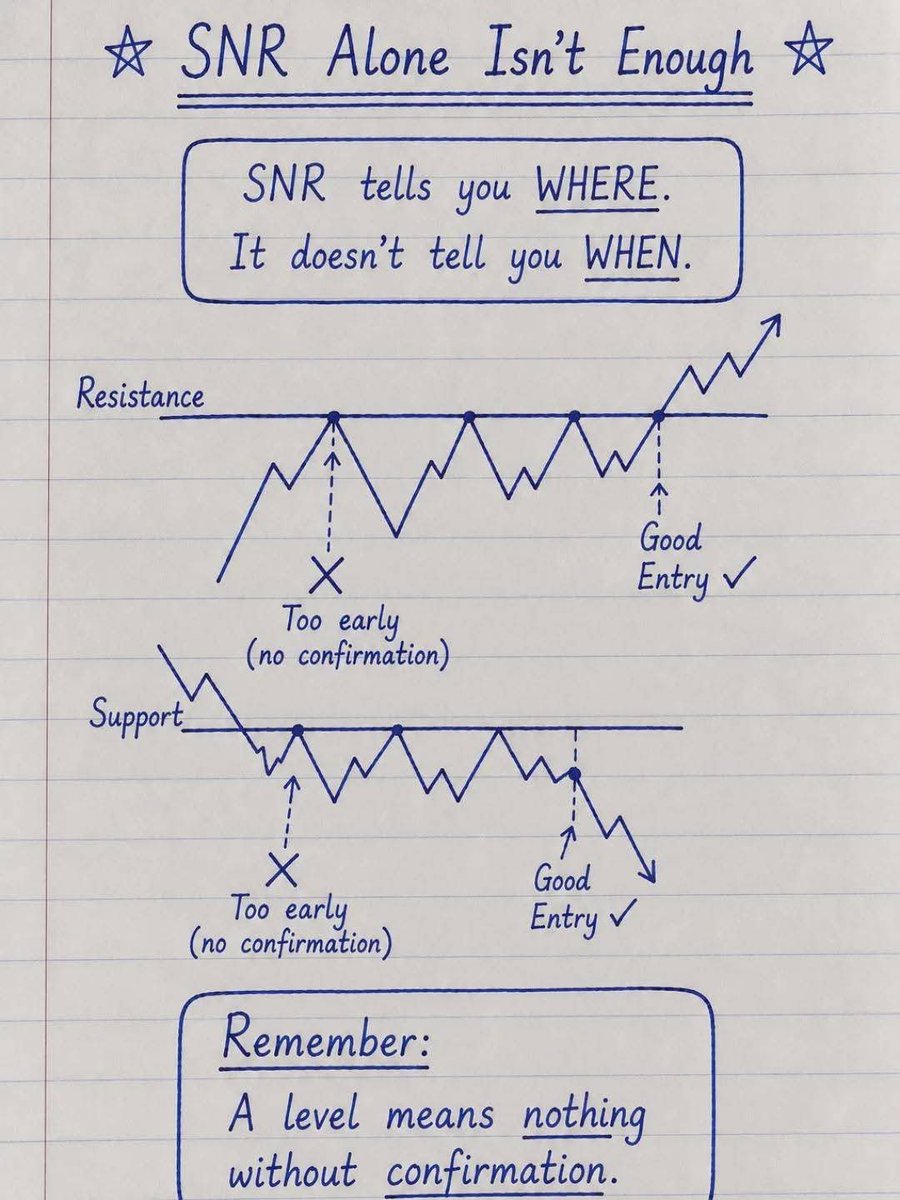 SNR Alone Isn't Enough
SNR tells you WHERE.
It doesn't tell you WHEN.
Resistance
Good
Entry
Too early
(no confirmation)
Support
Good
Entry
Too early
(no confirmation)
Remember:
A level means nothing
without confirmation.